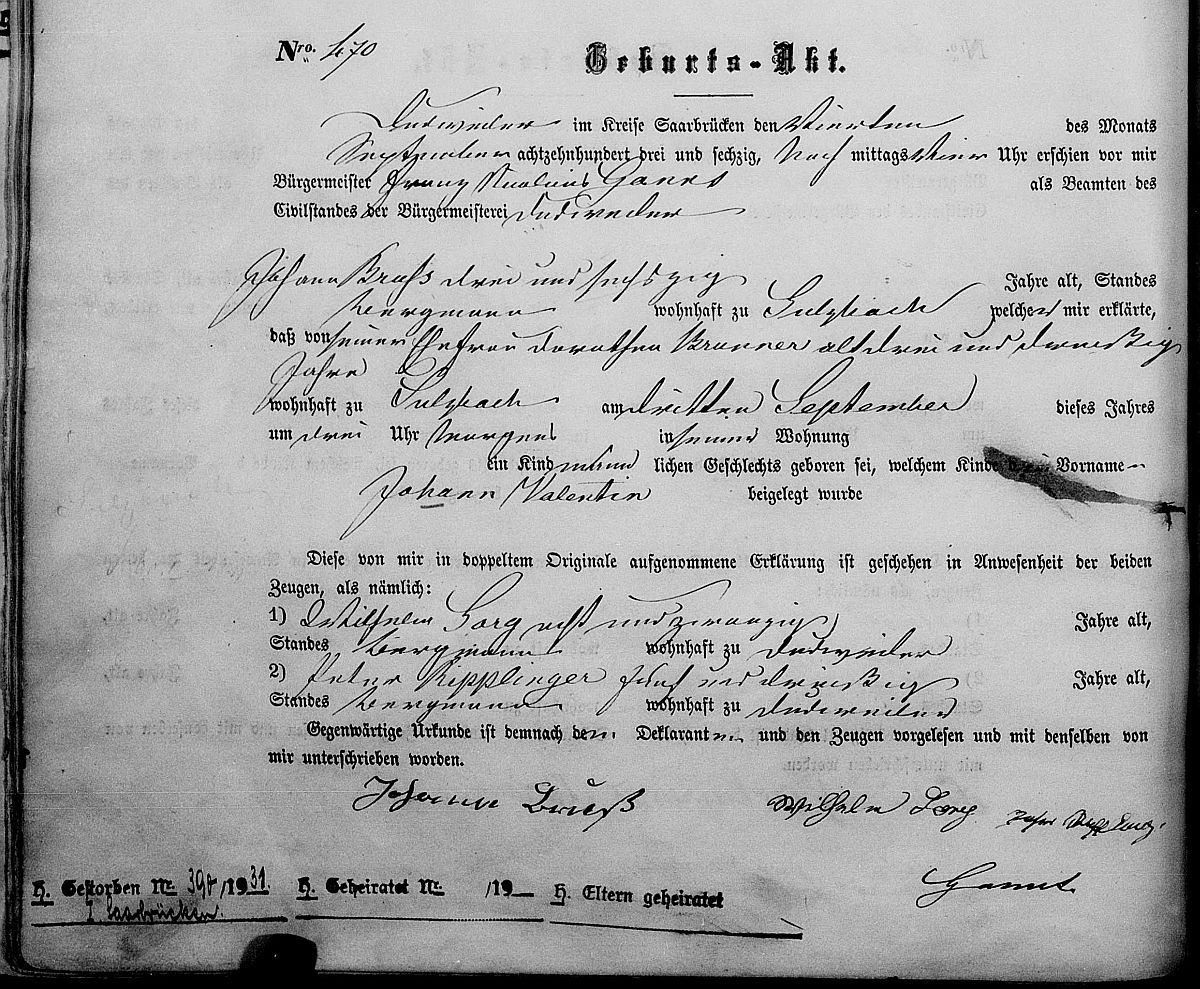 Nro. 470 Geburts-Akt.
Dudweiler im Kreise Saarbrücken den vierten des Monats
September achtzehnhundert drei und sechzig, Nach mittags vier Uhr erschien vor mir
Bürgermeister Franz als Beamten des
Civilstandes der Bürgermeisterei Dudweiler
Johann drei und sechszig Jahre alt, Standes
Bergmann wohnhaft zu Sulzbach welcher mir erklärte,
daß von seiner Ehefrau Dorothea alt drei und dreißig
Jahre
wohnhaft zu Sulzbach am dritten September dieses Jahres
um drei Uhr morgens in seiner Wohnung
ein Kind männlichen Geschlechts geboren sei, welchem Kinde Vorname
Johann Valentin beigelegt wurde
Diese von mir in doppeltem Originale aufgenommene Erklärung ist geschehen in Anwesenheit der beiden
Zeugen, als nämlich:
1) Wilhelm Sorg acht und zwanzig Jahre alt,
Standes Bergmann wohnhaft zu Dudweiler
2) Peter Ripplinger fünf und dreißig Jahre alt,
Standes Bergmann wohnhaft zu Dudweiler
Gegenwärtige Urkunde ist demnach dem Deklaranten und den Zeugen vorgelesen und mit denselben von
mir unterschrieben worden.
Johann Wilhelm Sorg Peter Ripplinger
H. Gestorben Nr. 390/1931 H. Geheiratet Nr. /19 H. Eltern geheiratet
Saarbrücken.